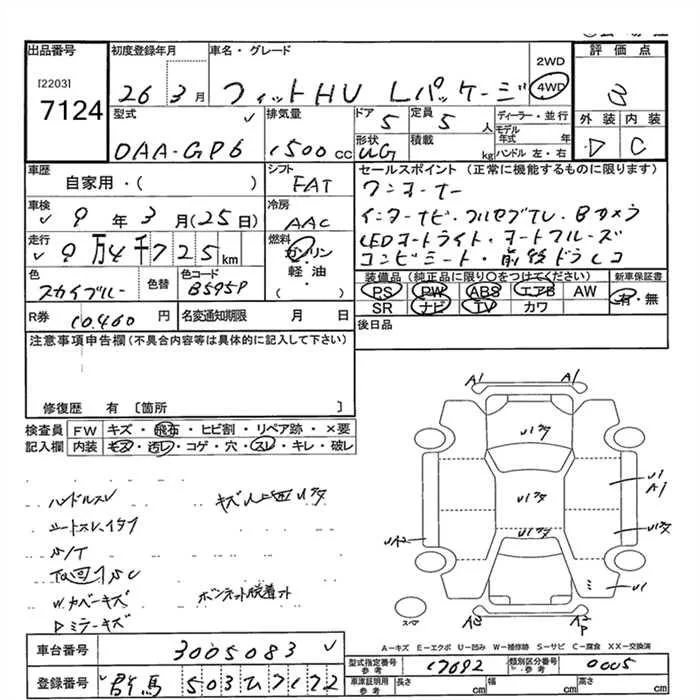 出品番号 初度登録年月 車名・グレード 2WD 4WD 評価点
[2203]
7124
26 3月 フィットHV Lパッケージ 3
型式 排気量 ドア 定員 ディーラー・並行 外装 内装
DAA-GP6 1500cc 5 5人 モデル年式 年 D C
形状 積載 ハンドル 左・右
UG kg
車歴 シフト セールスポイント(正常に機能するものに限ります)
自家用・( ) FAT ワンオーナー
車検 冷房 インターナビ・フルセグTV・Bカメラ
9年3月(25日) AAC LEDオートライト・オートクルーズ
走行 燃料 コンビシート・前後ドラレコ
9万4千725km ガソリン
軽油
( )
色 色替 色コード 装備品(純正品に限り○をつけてください) 新車保証書
スカイブルー B595P PS PW ABS エアB AW 有・無
SR ナビ TV カワ
R券 10.460円 名変通知期限 月 日 後日品
注意事項申告欄(不具合内容等は具体的に記入して下さい)
修復歴 有 〔箇所 〕
検査員 FW キズ・飛石・ヒビ割・リペア跡・×要
記入欄 内装 キズ・汚レ・コゲ・穴・スレ・キレ・破レ
ハンドルスレ
シートスレ
S/T
W.カバーキズ
Dミラーキズ
ボンネット脱着
A1 A1
U1
A1
U1
スペア
A-キズ E-エクボ U-凹み W-補修跡 S-サビ C-腐食 XX-交換済
車台番号 3005083
型式指定番号 参考 17092 類別区分番号 参考 0005
登録番号 群馬 503ひ7172
車庫証明用 参考 長さ cm 幅 cm 高さ cm